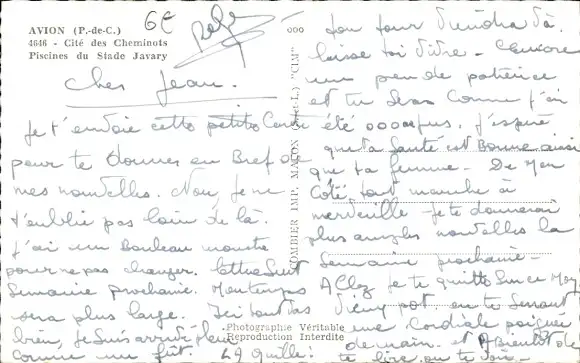 AVION (P.-de-C.)
4646 - Cité des Cheminots
Piscines du Stade Javary
6€
Cher Jean.
Je t'envoie cette petite Carte
pour te donner en Bref de
mes nouvelles. Non, je ne
t'oublie pas loin de là.
j'ai un Bouleau monstre
pour ne pas changer. lettre suit
Semaine prochaine. Mon temps
sera plus large. Ici tout va
bien, je suis arrivé
comme un La quille!
COMBIER IMP. MACON (S.-et-L.) "CIM"
Photographie Véritable
Reproduction Interdite
ton tour viendra va.
laisse toi vivre - Encore
un peu de patience
et tu seras comme j'ai
été J'espère
que ta Santé est Bonne ainsi
que ta femme - De Mon
Côté, tout marche à
merveille - je te donnerai
plus amples nouvelles la
Semaine prochaine -
Allez je te quitte sur ce Mon
Vieux pot, en te serrant
une Cordiale poignée
de main. et A Bientôt de
te lire ou te voir -